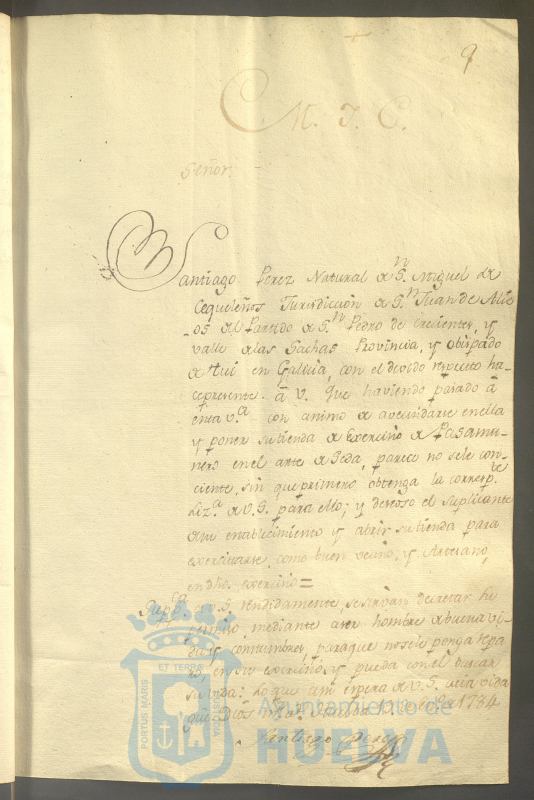 9
M. I. C.
Señor.
Santiago Perez Natural de S.n Miguel de
Cequeleños Jurisdiccion de S.n Juan de Albe
os del Partido de S.n Pedro de Crecientes, y
valle de las Hachas Provincia, y Obispado
de Tui en Galicia, con el devido respecto ha-
ce presente á V. que haviendo pasado á
esta v.a con animo de avecindarse en ella
y poner su tienda de Exercicio de Pasama-
nero en el arte de Seda, parece no se le con-
ciente, sin que primero obtenga la corresp.te
Liz.a de V.S. para ello; y deseoso el Suplicante
de su establecimiento y abrir su tienda para
exercitarse como buen vecino, y Artesano,
en dho. exercicio =
Supp.ca a V.S. rendidamente, se sirvan decretar su
permiso, mediante a ser hombre de buena vi-
da y costumbres, para que no se le ponga repa
ro, en su exercicio, y pueda con el buscar
su vida: Lo que asi espera de V.S. cuia vida
gue. Dios m.s a.s Huelva de 1784
Santiago Perez
PORTUS MARIS
ET TERRÆ
CUSTODIA
Ayuntamiento de
HUELVA